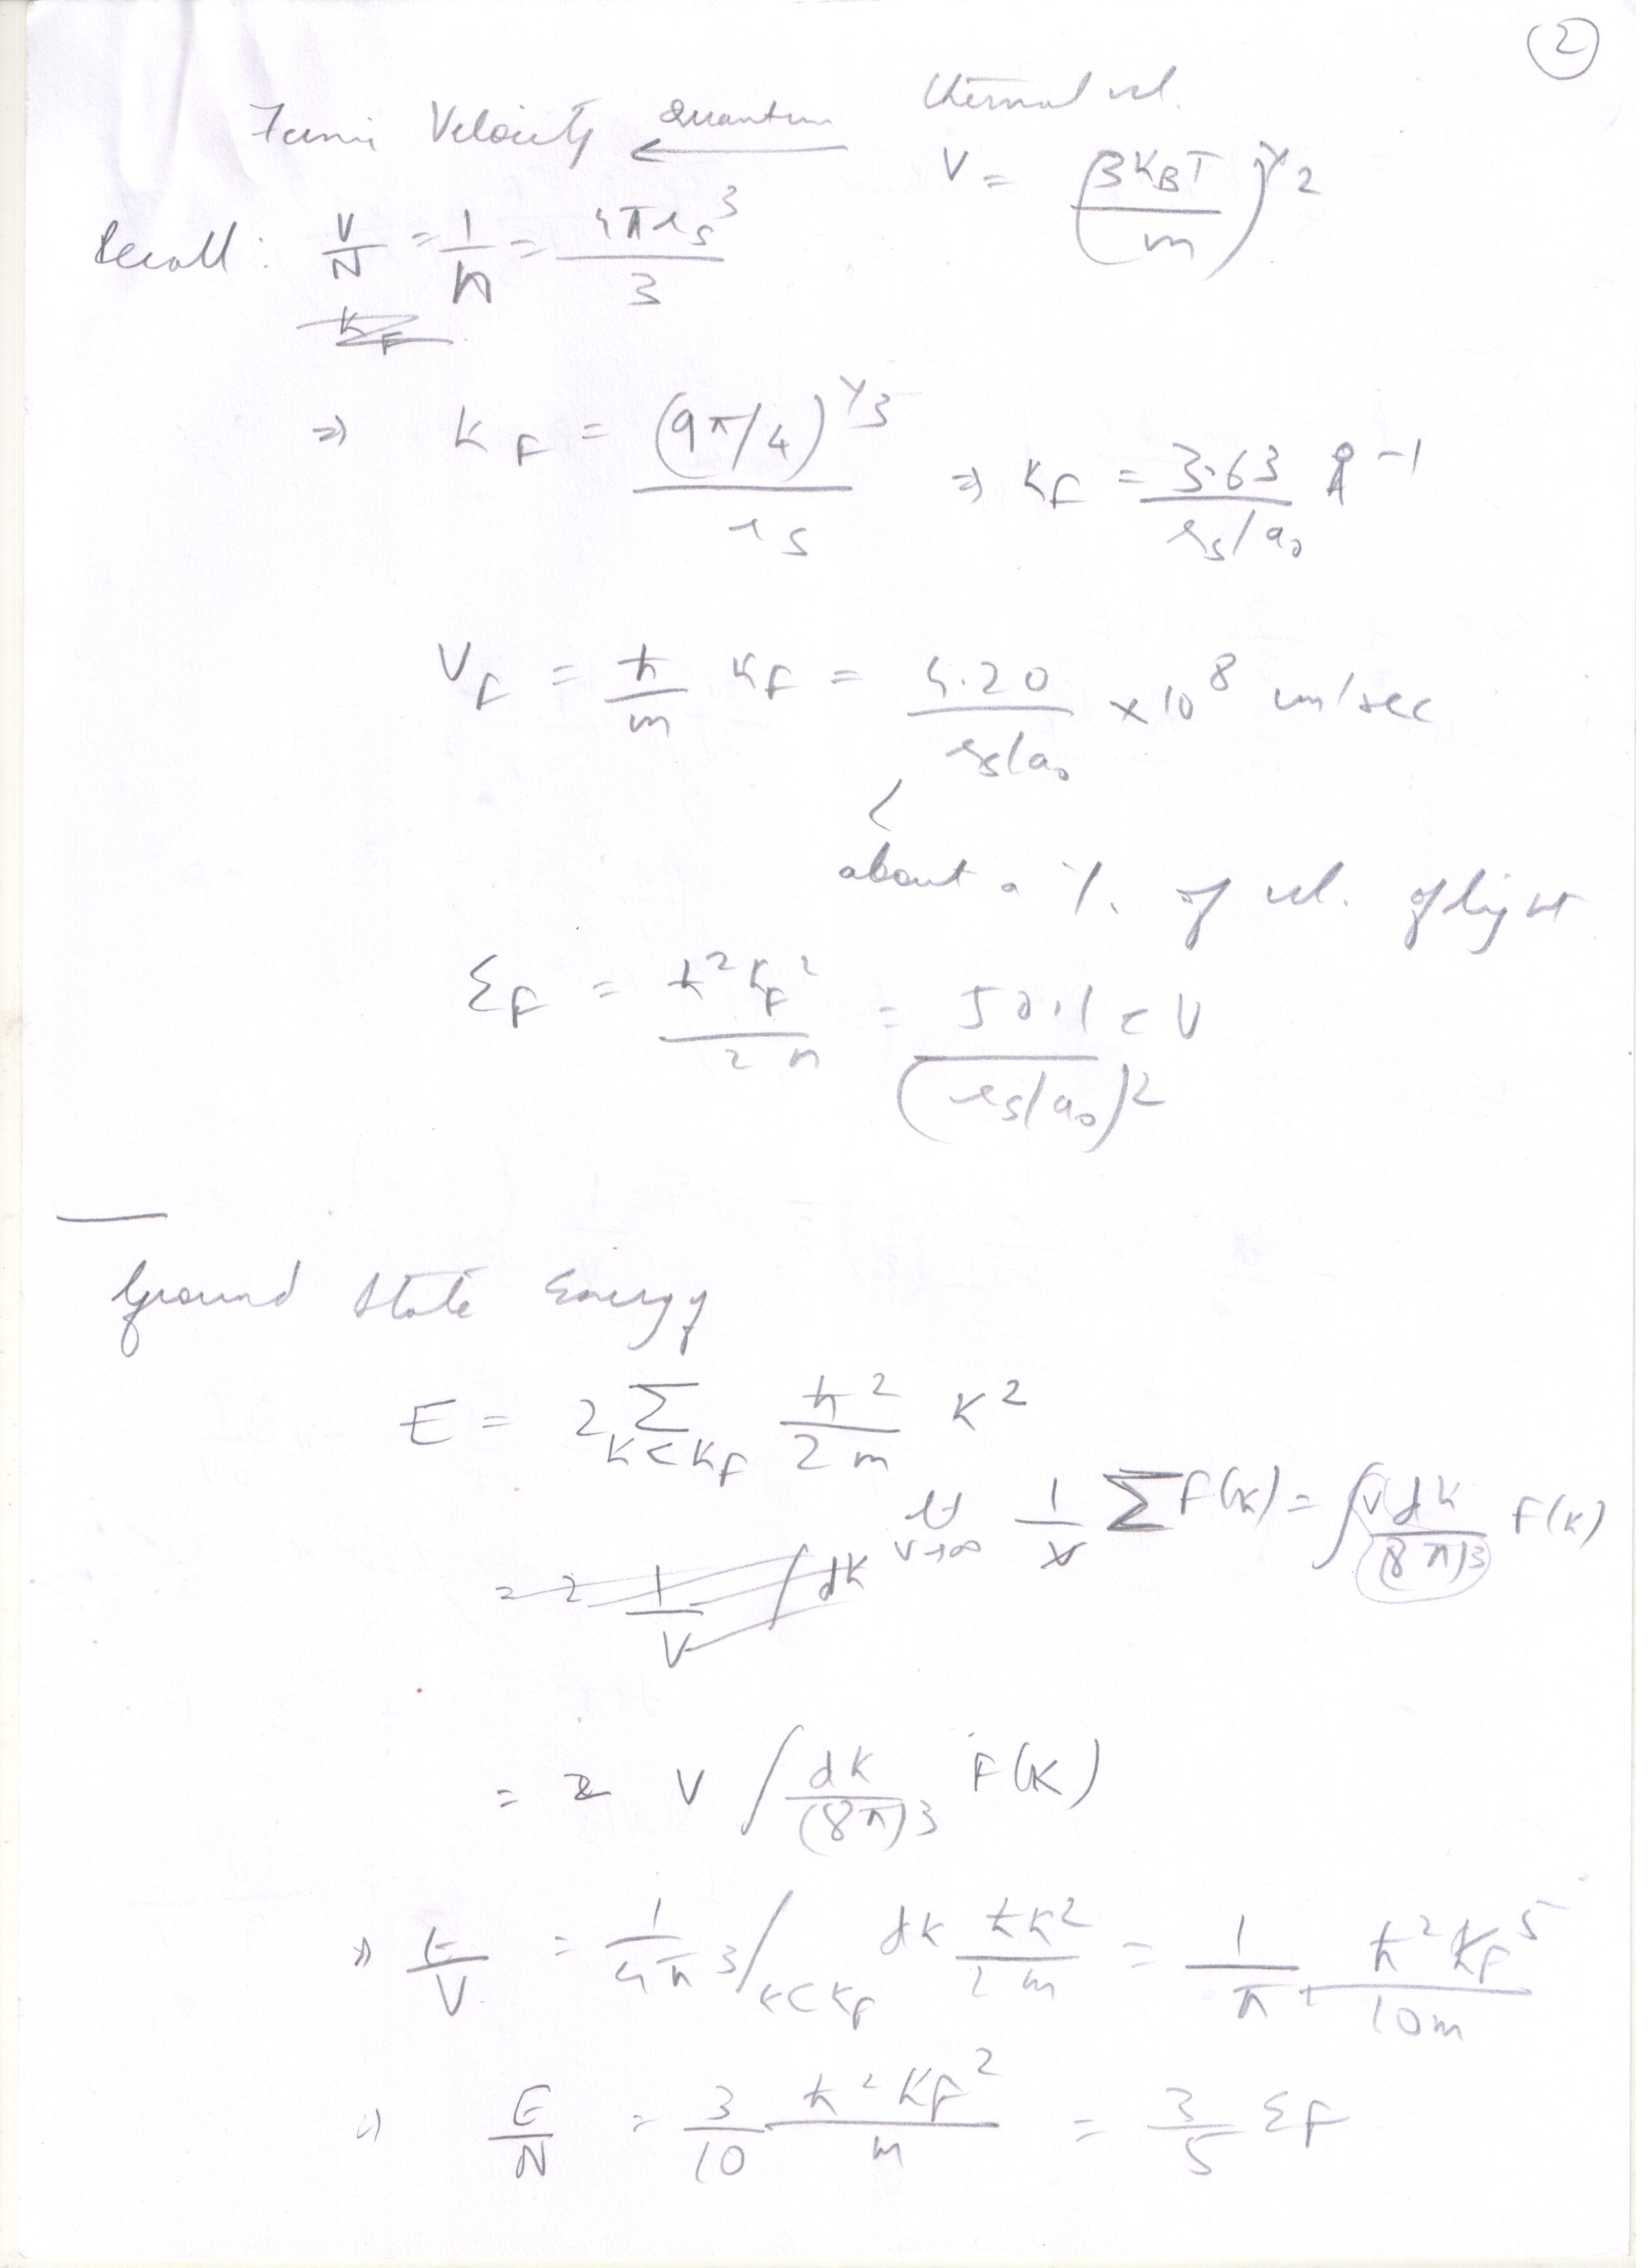 ②
Fermi Velocity ← Quantum thermal vel.
V = (3K_BT / m)^{1/2}
Recall : V/N = 1/n = 4πr_s^3 / 3
K_F
⇒ K_F = (9π/4)^{1/3} / r_s ⇒ K_F = 3.63 / (r_s/a_0) Å^{-1}
V_F = ħ/m K_F = 4.20 / (r_s/a_0) × 10^8 cm/sec
about a % of vel. of light
Σ_F = ħ^2 K_F^2 / 2m = 50.1 eV / (r_s/a_0)^2
Ground State Energy
E = 2 Σ_{K<K_F} ħ^2/2m K^2
= 2 1/V ∫dK
lt_{V→∞} 1/V Σ F(K) = ∫ V dK/(8π)3 F(K)
= 2 V ∫ dK/(8π)3 F(K)
⇒ E/V = 1/4π3 ∫_{K<K_F} dK ħK^2/2m = 1/π^2 ħ^2 K_F^5 / 10m
⇒ E/N = 3/10 ħ^2 K_F^2 / m = 3/5 Σ_F